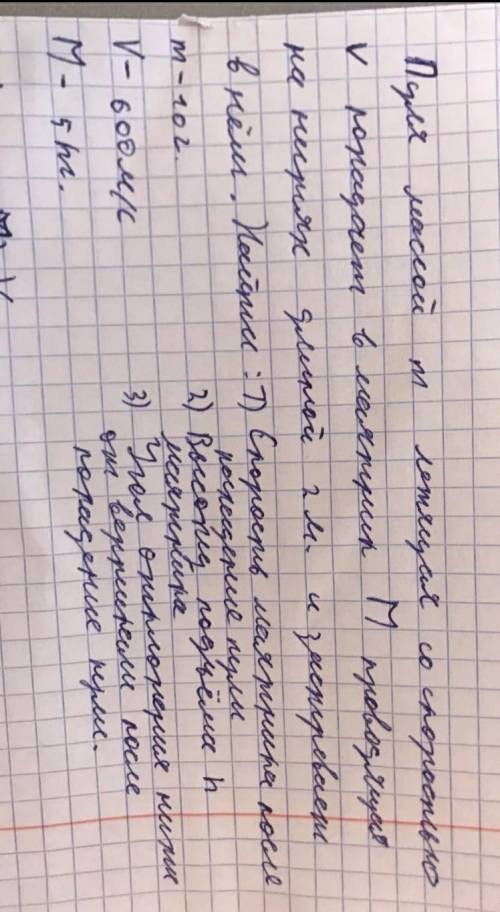 Пуля массой m летящая со скоростью
v попадает в маятник M провозящая
на нитях длиной 2 м. и застревает
в нём. Найти: 1) Скорость маятника после
попадения пули
m - 10 г. 2) Высоту подъёма h
маятника
V - 600 м/с 3) Угол отклонения нити
от вертикали после
M - 5 кг. попадение пули.